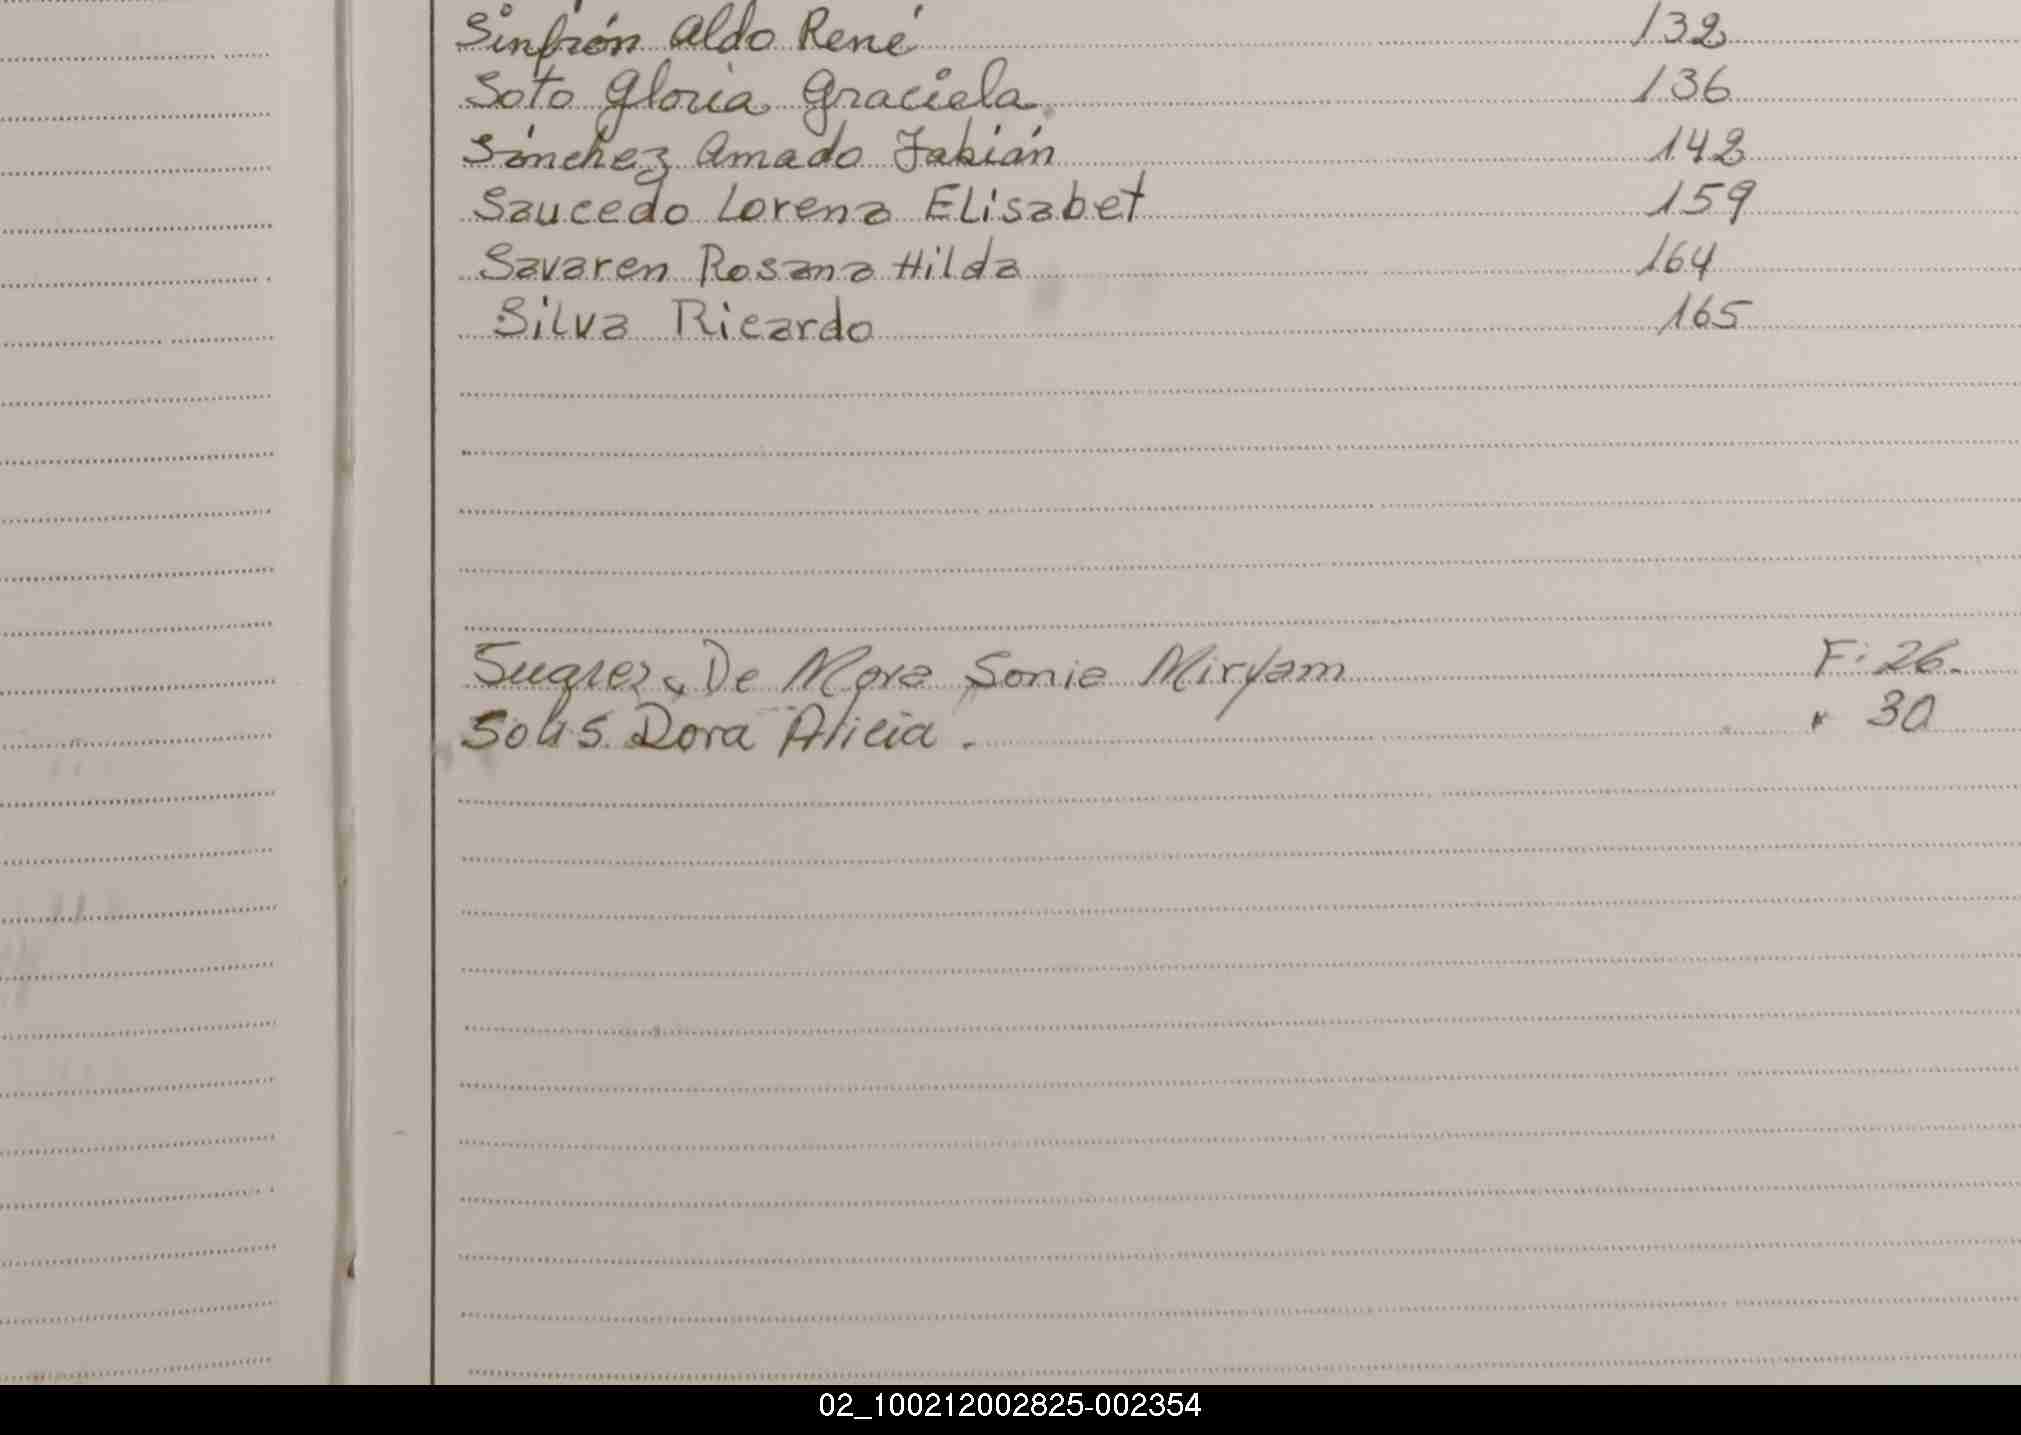 Sinfrón Aldo René 132
Soto Gloria Graciela. 136
Sánchez Amado Fabián 142
Saucedo Lorena Elisabet 159
Savaren Rosana Hilda 164
Silva Ricardo 165
Suarez De Mora Sonia Miryam F: 26.
Solis Dora Alicia. " 30
02_100212002825-002354